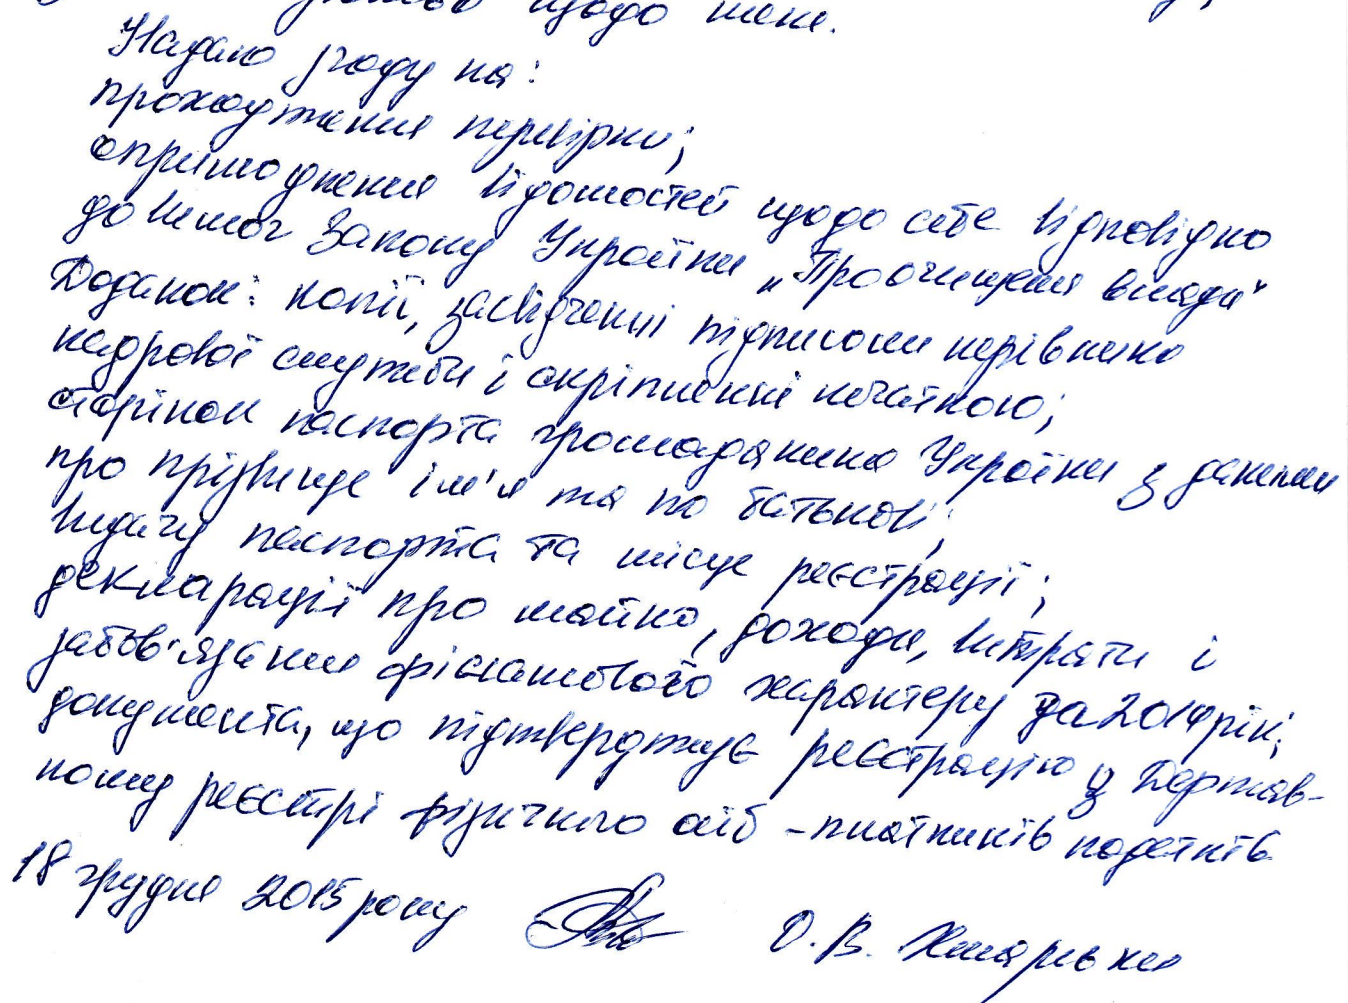 щодо мене.
Надаю згоду на:
проходження перевірки;
оприлюднення відомостей щодо себе відповідно
до вимог Закону України „Про очищення влади“
Додаток: копії, засвідчені підписом керівника
кадрової служби і скріплені печаткою;
сторінок паспорта громадянина України з даними
про прізвище ім'я та по батькові,
видачу паспорта та місце реєстрації;
декларації про майно, доходи, витрати і
зобов'язання фінансового характеру за 2014 рік;
документа, що підтверджує реєстрацію у Держав-
ному реєстрі фізичного осіб - платників податків
18 грудня 2015 року О.В.